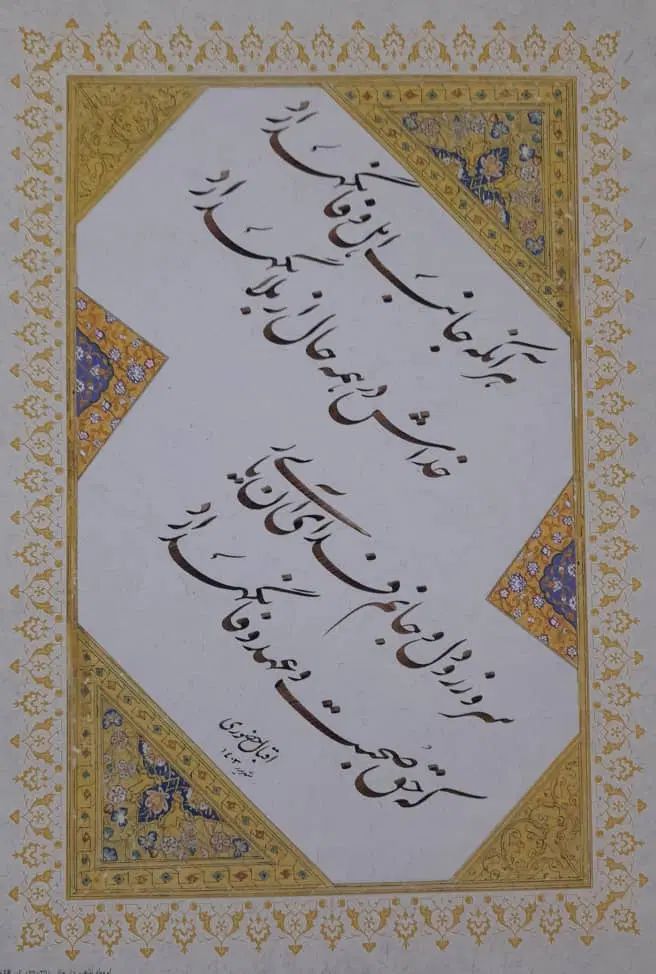 هر آنکه جانب اهل وفا نگهدارد
خداش در همه حال از بلا نگهدارد
سر و زر و دل و جانم فدای آن یاری
که حق صحبت و عهد و وفا نگهدارد
اقبال حضوری
۱۴۰۳